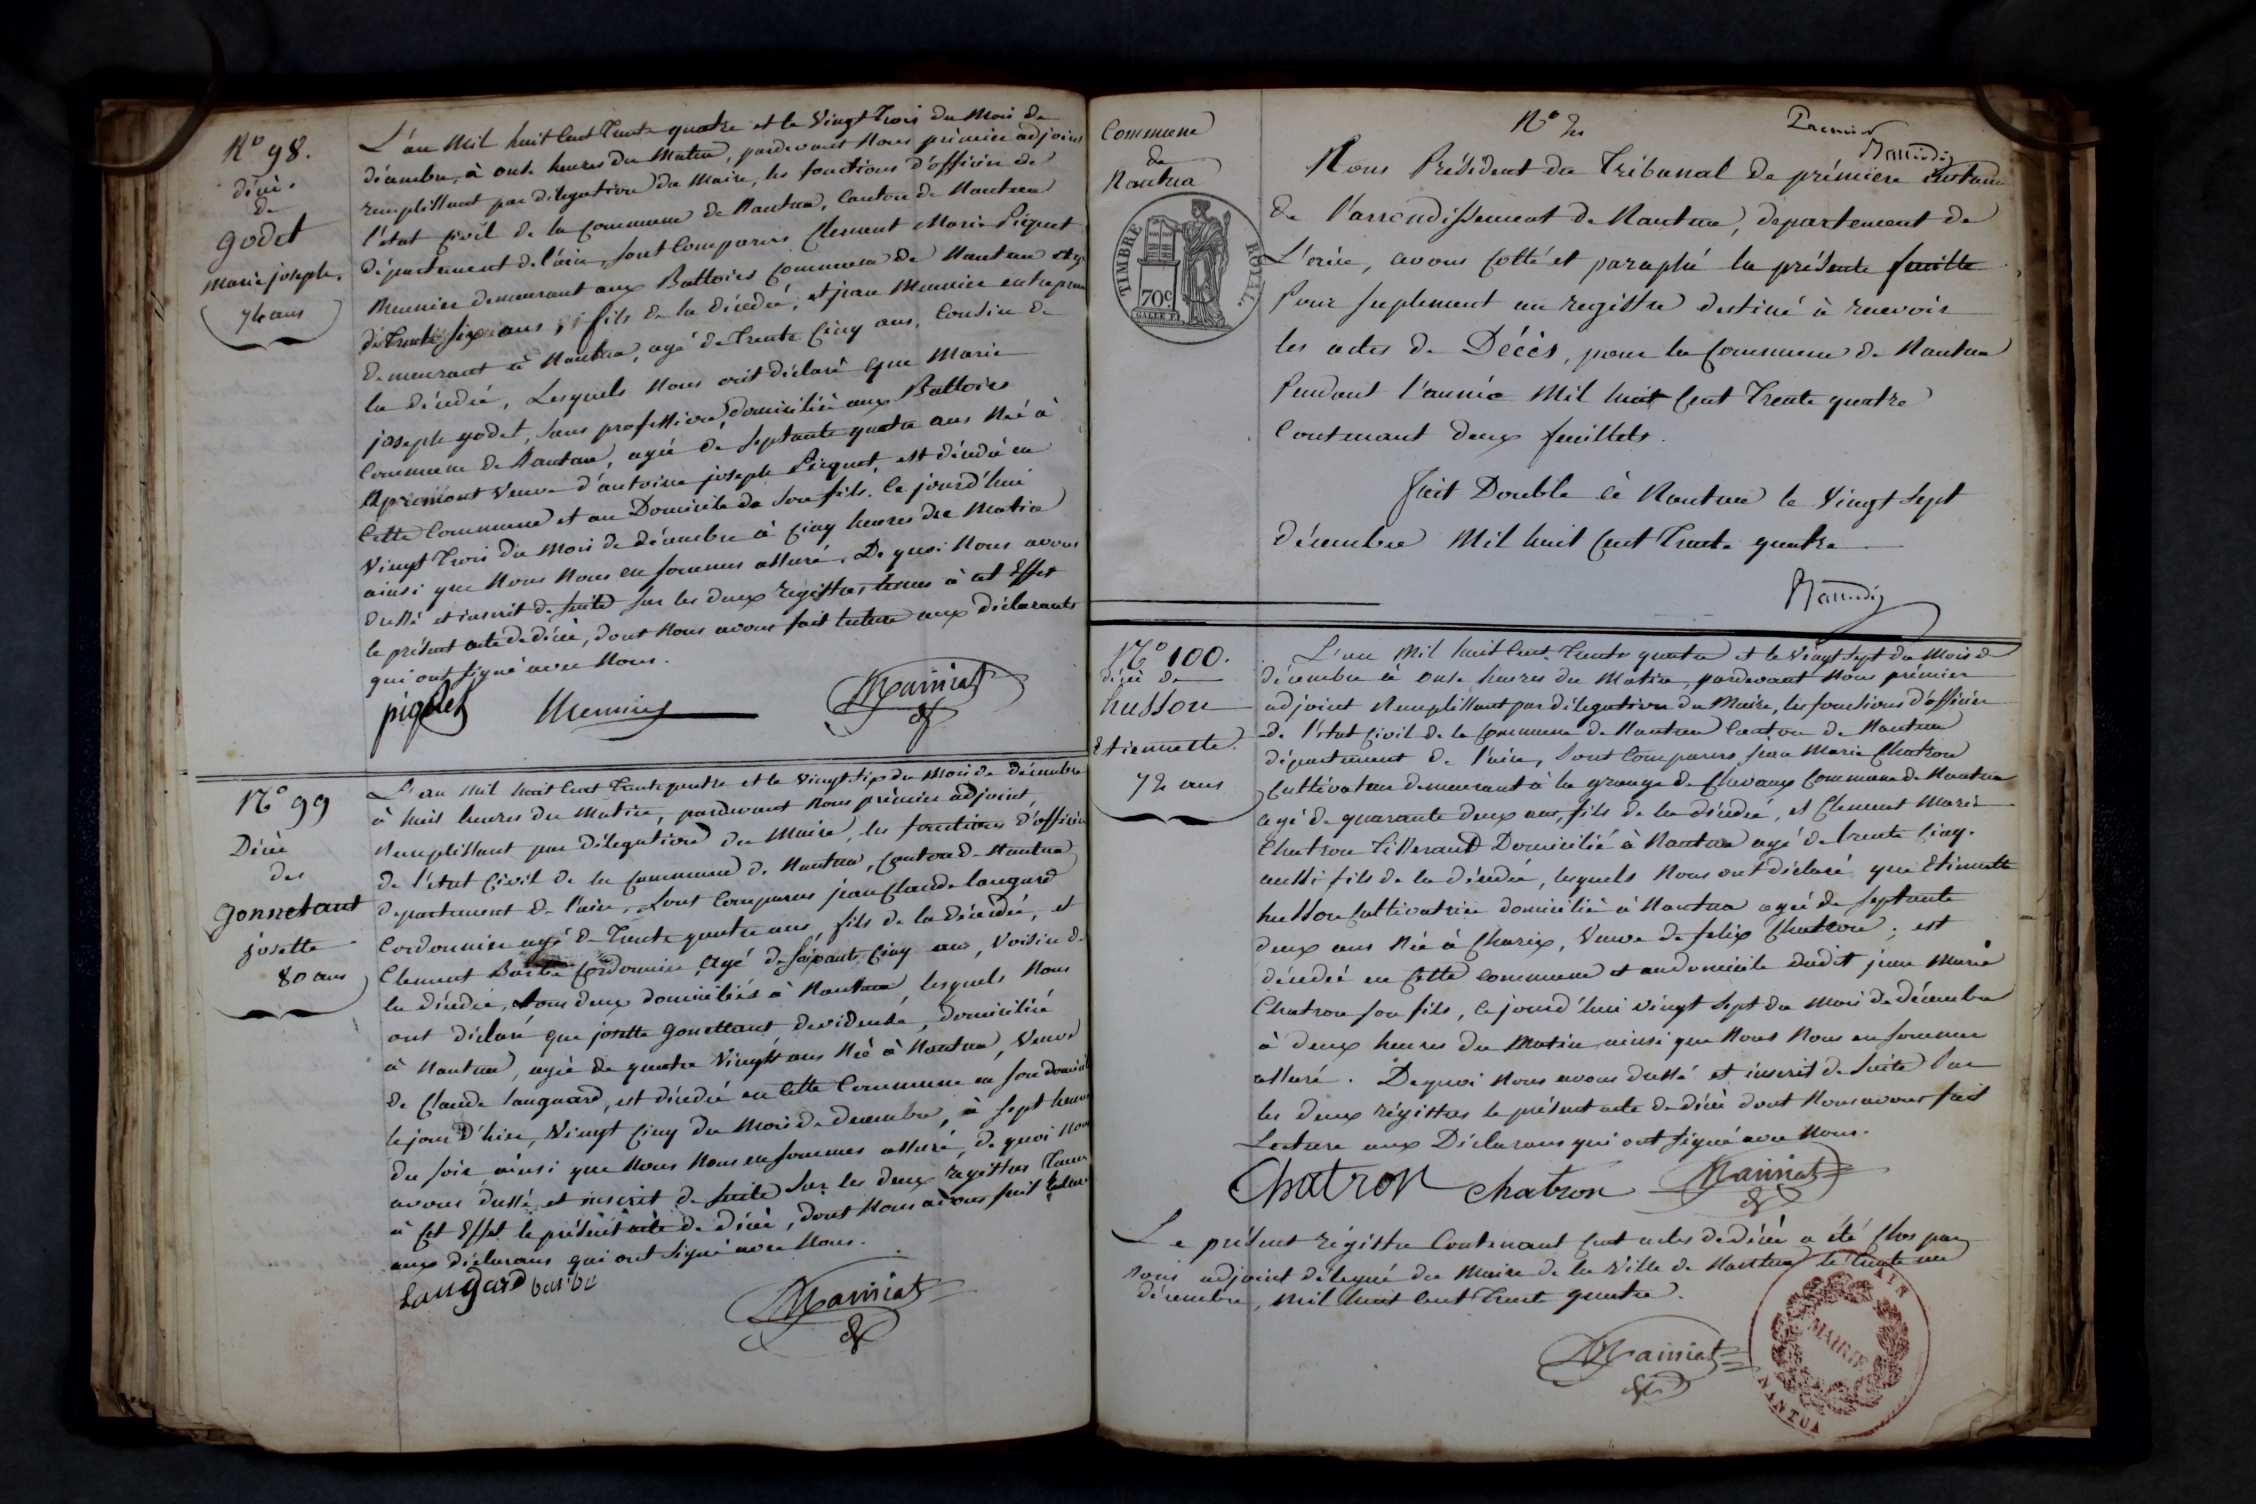 N° 98.
décès
de
godet
marie joseph.
74 ans
L'an Mil huit Cent Trente quatre et le Vingt Trois du Mois de
décembre, à onze heures du Matin, pardevant Nous prémier adjoint
remplissant par délégation du Maire, les fonctions d'officier de
l'état Civil de la Commune de Nantua, Canton de Nantua
département de l'ain, sont Comparus Clément Marie Piquet
Meunier demeurant aux Battoirs Commune de Nantua agé
de Trente six ans, fils de la décédée, et jean Meunier
demeurant à Nantua, agé de Trente Cinq ans, Cousin de
la décédée, Lesquels Nous ont déclaré que Marie
joseph godet, sans profession, domiciliée aux Battoirs
Commune de Nantua, agée de septante quatre ans Née à
Apremont Veuve d'antoine joseph Picquet, est décédée en
Cette Commune et au Domicile de son fils. Ce jourd'hui
Vingt Trois du Mois de décembre à Cinq heures du Matin
ainsi que Nous Nous en sommes assuré. De quoi Nous avons
dressé et inscrit de suite sur les deux registres tenus à cet Effet
le présent acte de décès, dont Nous avons fait lecture aux déclarants
qui ont signé avec Nous.
piquet Meunier Mainiat
N° 99
Décès
de
gonnetant
josette
80 ans
L'an Mil huit Cent Trente quatre et le Vingt six du Mois de décembre
à huit heures du Matin, pardevant Nous prémier adjoint,
Remplissant par délégation du Maire, les fonctions d'officier
de l'état Civil de la Commune de Nantua, Canton de Nantua
département de l'ain, sont Comparus jean Claude Langard
Cordonnier agé de Trente quatre ans, fils de la décédée, et
Clement Barbe Cordonnier, agé de soixante Cinq ans, Voisin de
la décédée, tous deux domiciliés à Nantua, lesquels Nous
ont déclaré que josette gonettant devideuse, domiciliée
à Nantua, agée de quatre Vingt ans Née à Nantua, Veuve
de Claude Languard, est décédée en Cette Commune en son domicile
le jour d'hier, Vingt Cinq du Mois de decembre, à sept heures
du soir, ainsi que Nous Nous en sommes assuré, de quoi Nous
avons dressé et inscrit de suite sur les deux registres Tenus
à Cet Effet le présent acte de décès, dont Nous avons fait lecture
aux déclarans qui ont signé avec Nous.
Langard barbe Mainiat
Commune
de
Nantua
TIMBRE ROYAL.
70c
N° des
Premier
Nous Président du Tribunal de prémiere instance
de l'arrondissement de Nantua, departement de
L'ain, avons Cotté et paraphé la présente feuille
Pour suplement au registre destiné à recevoir
les actes de Décès, pour la Commune de Nantua
Pendant l'année Mil huit Cent Trente quatre
Contenant deux feuillets.
Fait Double à Nantua le Vingt Sept
décembre Mil huit Cent Trente quatre
N° 100.
décès de
husson
Etiennette.
72 ans
L'an Mil huit Cent Trente quatre et le Vingt sept du Mois de
décembre à onze heures du Matin, pardevant Nous prémier
adjoint Remplissant par délégation du Maire, les fonctions d'officier
de l'état Civil de la Commune de Nantua Canton de Nantua
département de l'ain, sont Comparus jean Marie Chatron
Cultivateur demeurant à la grange de Chevaux Commune de Nantua
agé de quarante deux ans, fils de la décédée, et Clement Marie
Chatron Tisserand Domicilié à Nantua agé de trente Cinq.
aussi fils de la décédée, lesquels Nous ont déclaré que Etiennette
husson Cultivatrice domiciliée à Nantua agée de septante
deux ans Née à Charix, Veuve de felix Chatron, est
décédée en Cette commune et au domicile dudit jean Marie
Chatron son fils, Ce jourd'hui vingt sept du Mois de décembre
à deux heures du Matin ainsi que Nous Nous en sommes
assuré. De quoi Nous avons dressé et inscrit de suite sur
les deux régistres le présent acte de décès dont Nous avons fait
Lecture aux Déclarans qui ont signé avec Nous.
Chatron chatron Mainiat
Le présent régistre Contenant Cent actes de décès a été Clos par
Nous adjoint délégué du Maire de la Ville de Nantua le trente un
décembre, Mil huit Cent Trente quatre.
Mainiat
AIN
MAIRIE
NANTUA